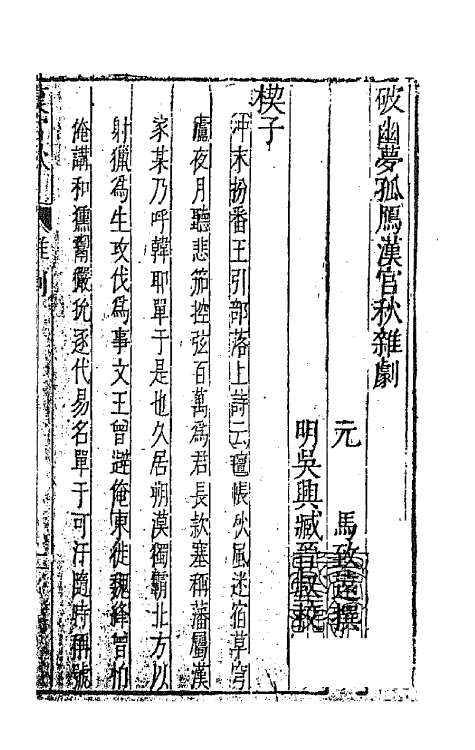 破幽夢孤鴈漢宮秋雜劇
元 馬致遠撰
明吳興臧晉叔校
楔子
冲末扮番王引部落上詩云氊帳秋風迷宿草穹
廬夜月聽悲笳控弦百萬爲君長欵塞稱藩屬漢
家某乃呼韓耶單于是也久居朔漠獨霸北方以
射獵爲生攻伐爲事文王曾避俺東徙魏絳曾怕
俺講和獯鬻嚴狁逐代易名單于可汗隨時稱號
漢宮秋 雜劇